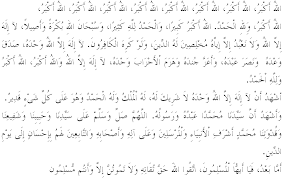 اللَّهُ أَكْبَرُ، اللَّهُ أَكْبَرُ، اللَّهُ أَكْبَرُ، اللَّهُ أَكْبَرُ، اللَّهُ أَكْبَرُ، اللَّهُ أَكْبَرُ،
اللَّهُ أَكْبَرُ، وَلِلَّهِ الْحَمْدُ. اللَّهُ أَكْبَرُ كَبِيرًا، وَالْحَمْدُ لِلَّهِ كَثِيرًا، وَسُبْحَانَ اللَّهِ بُكْرَةً وَأَصِيلًا، لَا إِلَهَ
إِلَّا اللَّهُ وَلَا نَعْبُدُ إِلَّا إِيَّاهُ مُخْلِصِينَ لَهُ الدِّينَ، وَلَوْ كَرِهَ الْكَافِرُونَ. لَا إِلَهَ إِلَّا اللَّهُ وَحْدَهُ، صَدَقَ
وَعْدَهُ، وَنَصَرَ عَبْدَهُ، وَأَعَزَّ جُنْدَهُ وَهَزَمَ الْأَحْزَابَ وَحْدَهُ، لَا إِلَهَ إِلَّا اللَّهُ وَاللَّهُ أَكْبَرُ، اللَّهُ أَكْبَرُ
وَلِلَّهِ الْحَمْدُ.
أَشْهَدُ أَنْ لَا إِلَهَ إِلَّا اللَّهُ وَحْدَهُ لَا شَرِيكَ لَهُ، لَهُ الْمُلْكُ وَلَهُ الْحَمْدُ وَهُوَ عَلَى كُلِّ شَيْءٍ قَدِيرٌ.
وَأَشْهَدُ أَنَّ سَيِّدَنَا مُحَمَّدًا عَبْدُهُ وَرَسُولُهُ. اللَّهُمَّ صَلِّ وَسَلِّمْ عَلَى سَيِّدِنَا وَحَبِيبِنَا وَشَفِيعِنَا
وَقُدْوَتِنَا مُحَمَّدٍ أَشْرَفِ الْأَنْبِيَاءِ وَالْمُرْسَلِينَ وَعَلَى آلِهِ وَأَصْحَابِهِ وَالتَّابِعِينَ لَهُمْ بِإِحْسَانٍ إِلَى يَوْمِ
الدِّينِ.
أَمَّا بَعْدُ، فَيَا أَيُّهَا الْمُسْلِمُونَ، اتَّقُوا اللَّهَ حَقَّ تُقَاتِهِ وَلَا تَمُوتُنَّ إِلَّا وَأَنْتُمْ مُسْلِمُونَ